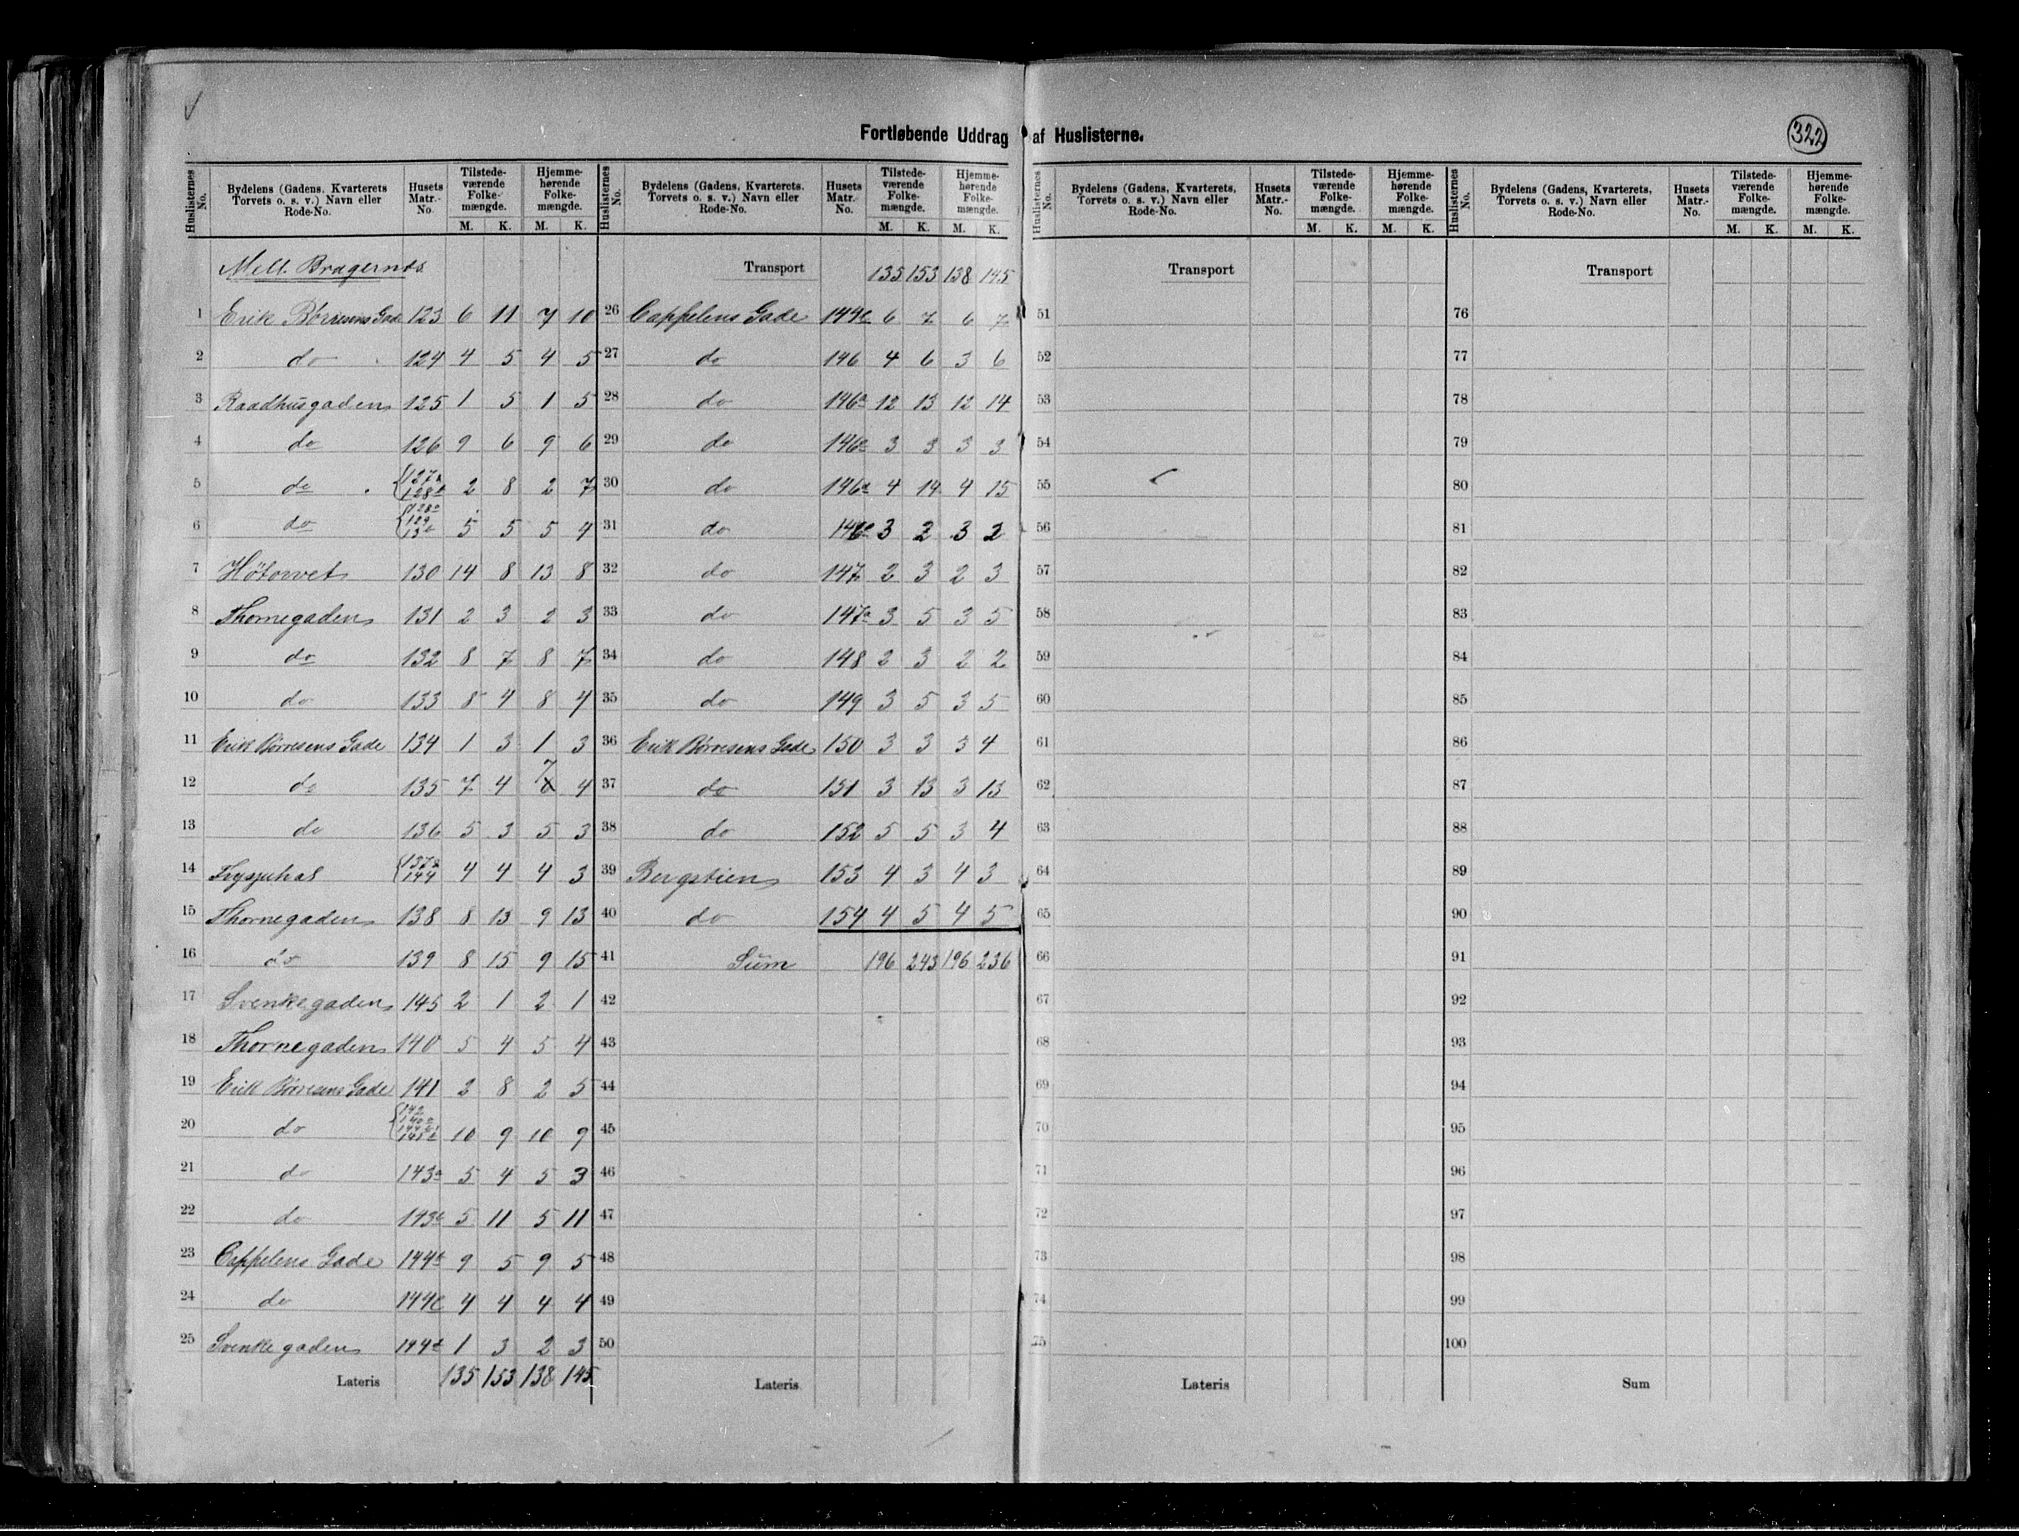 322
Fortløbende Uddrag af Huslisterne.
Huslisternes No. | Bydelens (Gadens, Kvarterets Torvets o. s. v.) Navn eller Rode-No. | Husets Matr.-No. | Tilstede-værende Folke-mængde. M. K. | Hjemme-hørende Folke-mængde. M. K.
Mell. Bragernes
1 Erik Börresens Gade 123 6 11 7 10
2 do 124 4 5 4 5
3 Raadhusgaden 125 1 5 1 5
4 do 126 9 6 9 6
5 do 127a 128b 2 8 2 7
6 do 128a 129 5 5 5 4
7 Høtorvet 130 14 8 13 8
8 Thornegaden 131 2 3 2 3
9 do 132 8 7 8 7
10 do 133 8 4 8 4
11 Erik Börresens Gade 134 1 3 1 3
12 do 135 7 4 7 4
13 do 136 5 3 5 3
14 137a 144 4 4 4 3
15 Thornegaden 138 8 13 9 13
16 do 139 8 15 9 15
17 Svenkegaden 145 2 1 2 1
18 Thornegaden 140 5 4 5 4
19 Erik Börresens Gade 141 2 8 2 5
20 do 142 10 9 10 9
21 do 143a 5 4 5 3
22 do 143b 5 11 5 11
23 Cappelens Gade 144b 9 5 9 5
24 do 144c 4 4 4 4
25 Svenkegaden 144d 1 3 2 3
Lateris 135 153 138 145
Huslisternes No. | Bydelens (Gadens, Kvarterets, Torvets o. s. v.) Navn eller Rode-No. | Husets Matr.-No. | Tilstede-værende Folke-mængde. M. K. | Hjemme-hørende Folke-mængde. M. K.
Transport 135 153 138 145
26 Cappelens Gade 144e 6 7 6 7
27 do 146 4 6 3 6
28 do 146a 12 13 12 14
29 do 146c 3 3 3 3
30 do 146d 4 14 4 15
31 do 146e 3 2 3 2
32 do 147 2 3 2 3
33 do 147a 3 5 3 5
34 do 148 2 3 2 2
35 do 149 3 5 3 5
36 Erik Börresens Gade 150 3 3 3 4
37 do 151 3 13 3 13
38 do 152 5 5 3 4
39 Bergstien 153 4 3 4 3
40 do 154 4 5 4 5
41 Sum 196 243 196 236
42
43
44
45
46
47
48
49
50
Lateris
Huslisternes No. | Bydelens (Gadens, Kvarterets, Torvets o. s. v.) Navn eller Rode-No. | Husets Matr.-No. | Tilstede-værende Folke-mængde. M. K. | Hjemme-hørende Folke-mængde. M. K.
Transport
51
52
53
54
55
56
57
58
59
60
61
62
63
64
65
66
67
68
69
70
71
72
73
74
75
Lateris
Huslisternes No. | Bydelens (Gadens, Kvarterets, Torvets o. s. v.) Navn eller Rode-No. | Husets Matr.-No. | Tilstede-værende Folke-mængde. M. K. | Hjemme-hørende Folke-mængde. M. K.
Transport
76
77
78
79
80
81
82
83
84
85
86
87
88
89
90
91
92
93
94
95
96
97
98
99
100
Sum